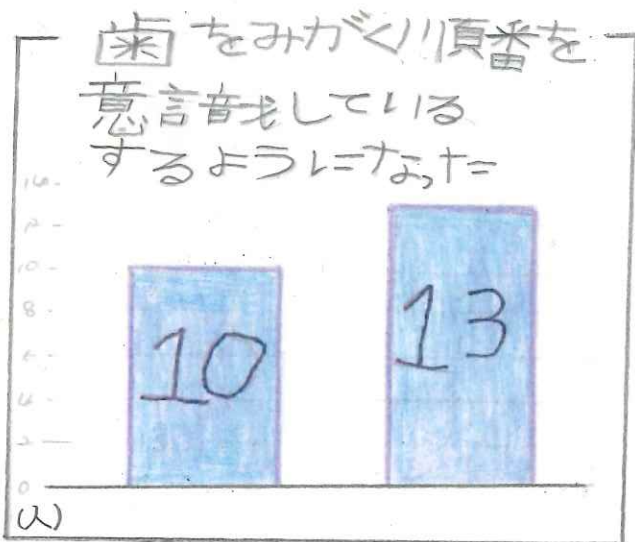 歯をみがく順番を
意識している
するようになった
14
12
10
8
6
4
2
0
10
13
(人)